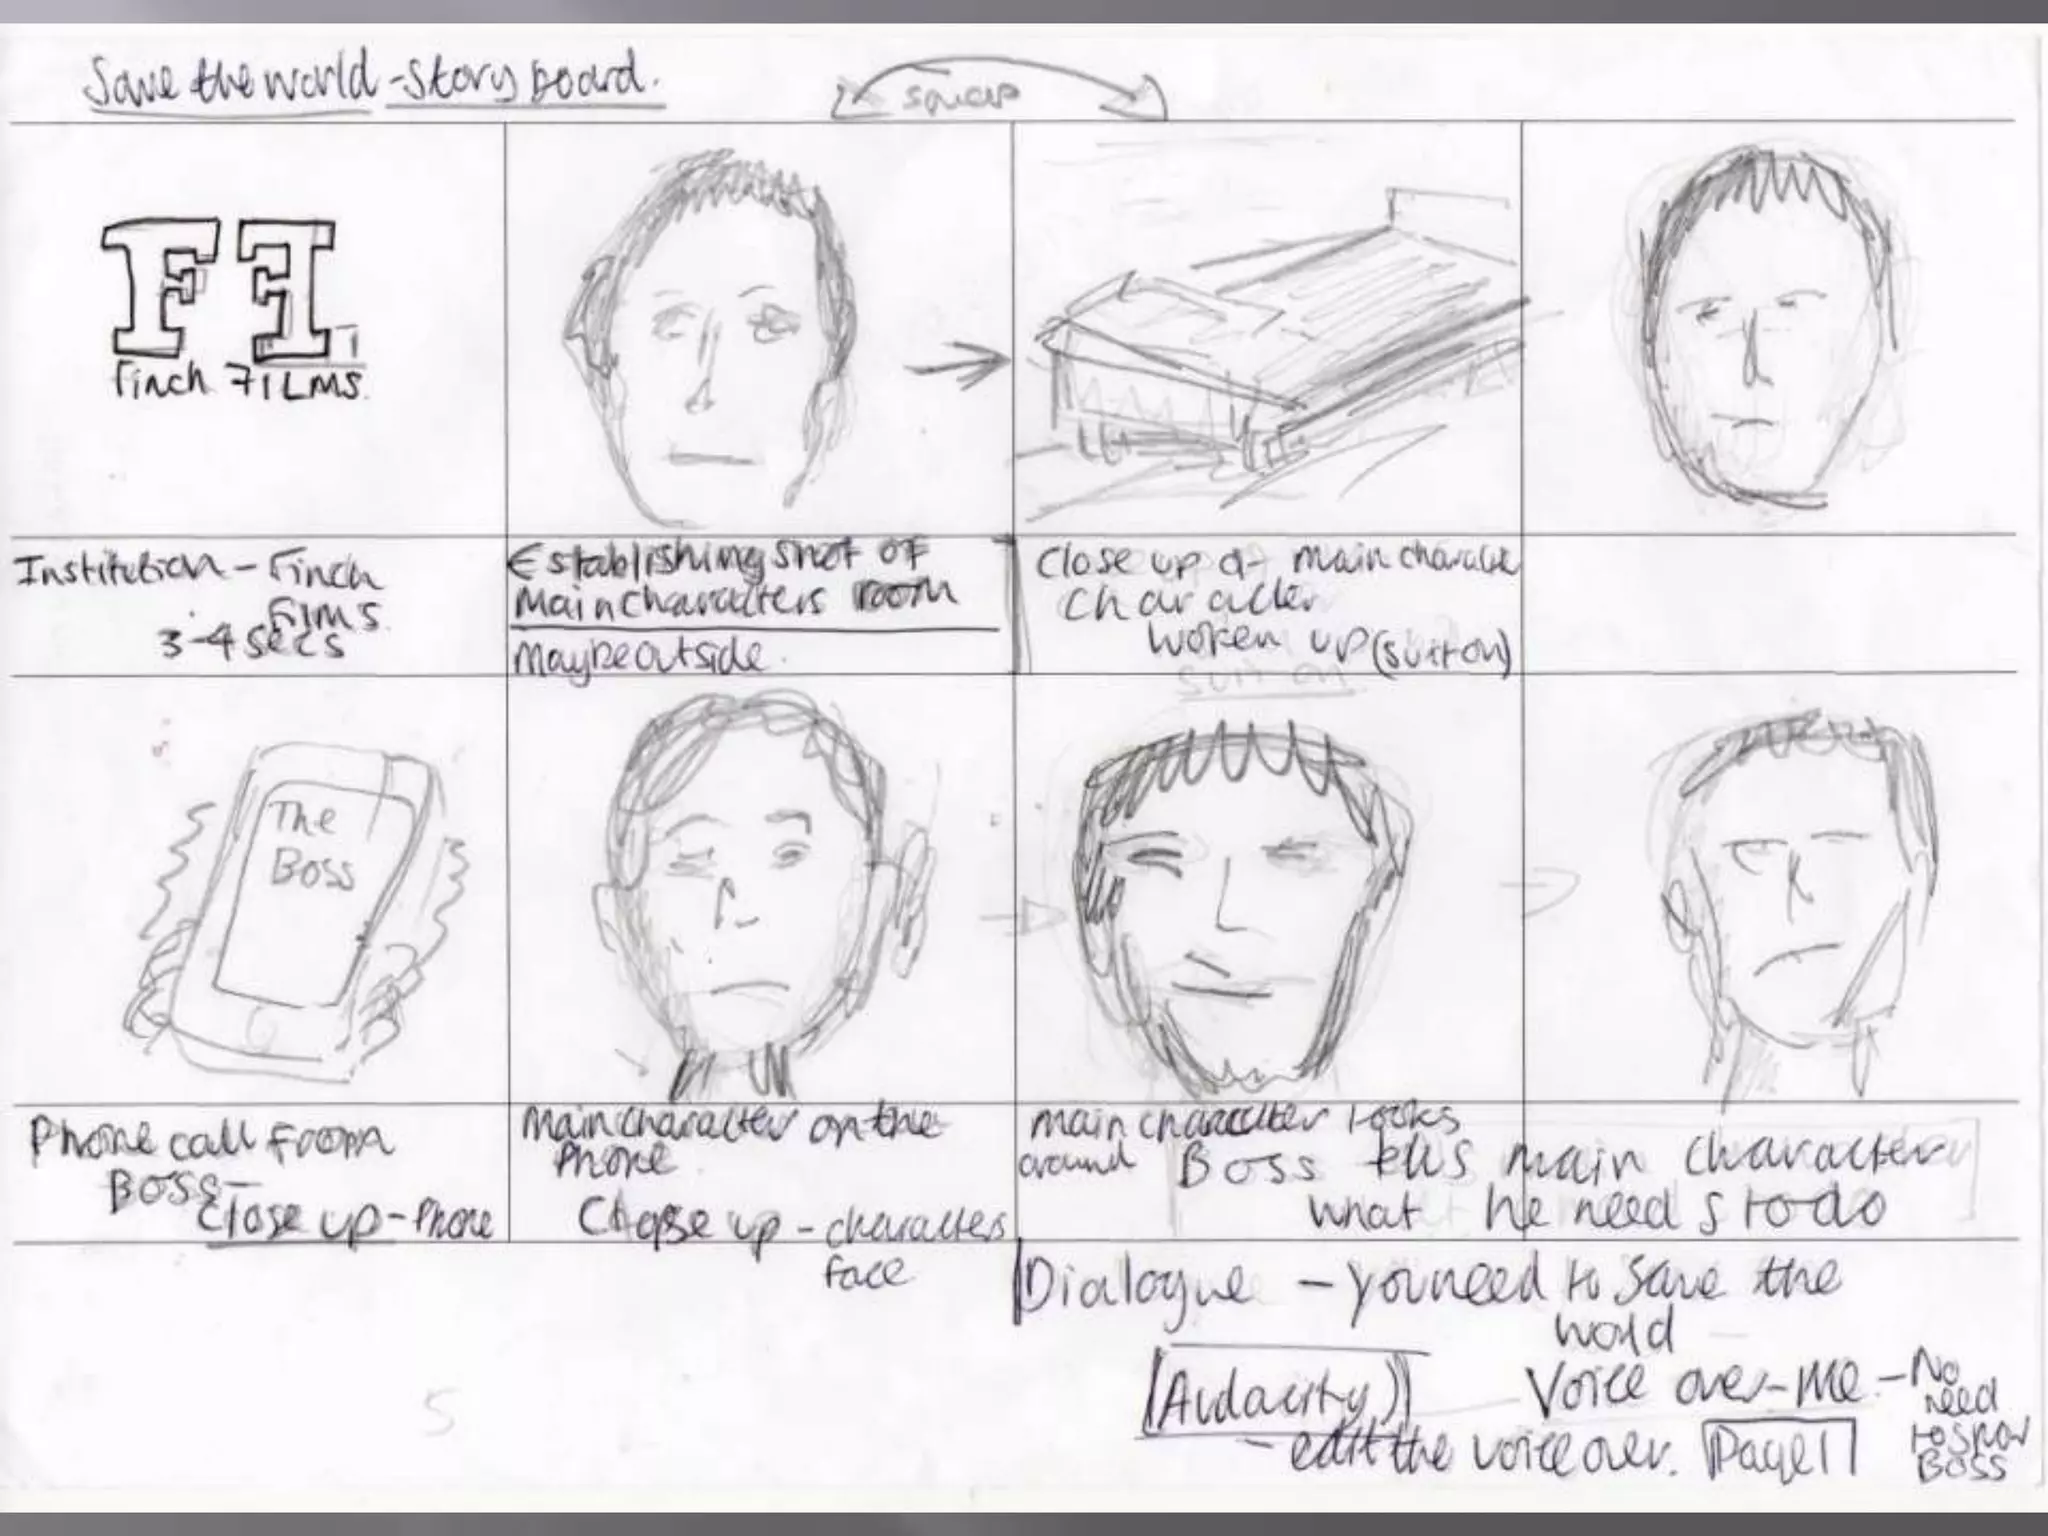 Save the world - Story board.
swap
FF
Finch FILMS.
Institution - Finch
Films.
3-4 secs
Establishing shot of
Main characters room
Maybe outside.
Close up of main character
Character
woken up (sutton)
sutton
The
Boss
Phone call from
Boss -
Close up - Phone
Main character on the
Phone.
Close up - characters
face
main character looks
around
Boss tells main character
what he needs to do
Dialogue - you need to save the
world
(Audacity)
Voice over - me - No
need
to show
Boss
- edit the voice over.
Page 1
5